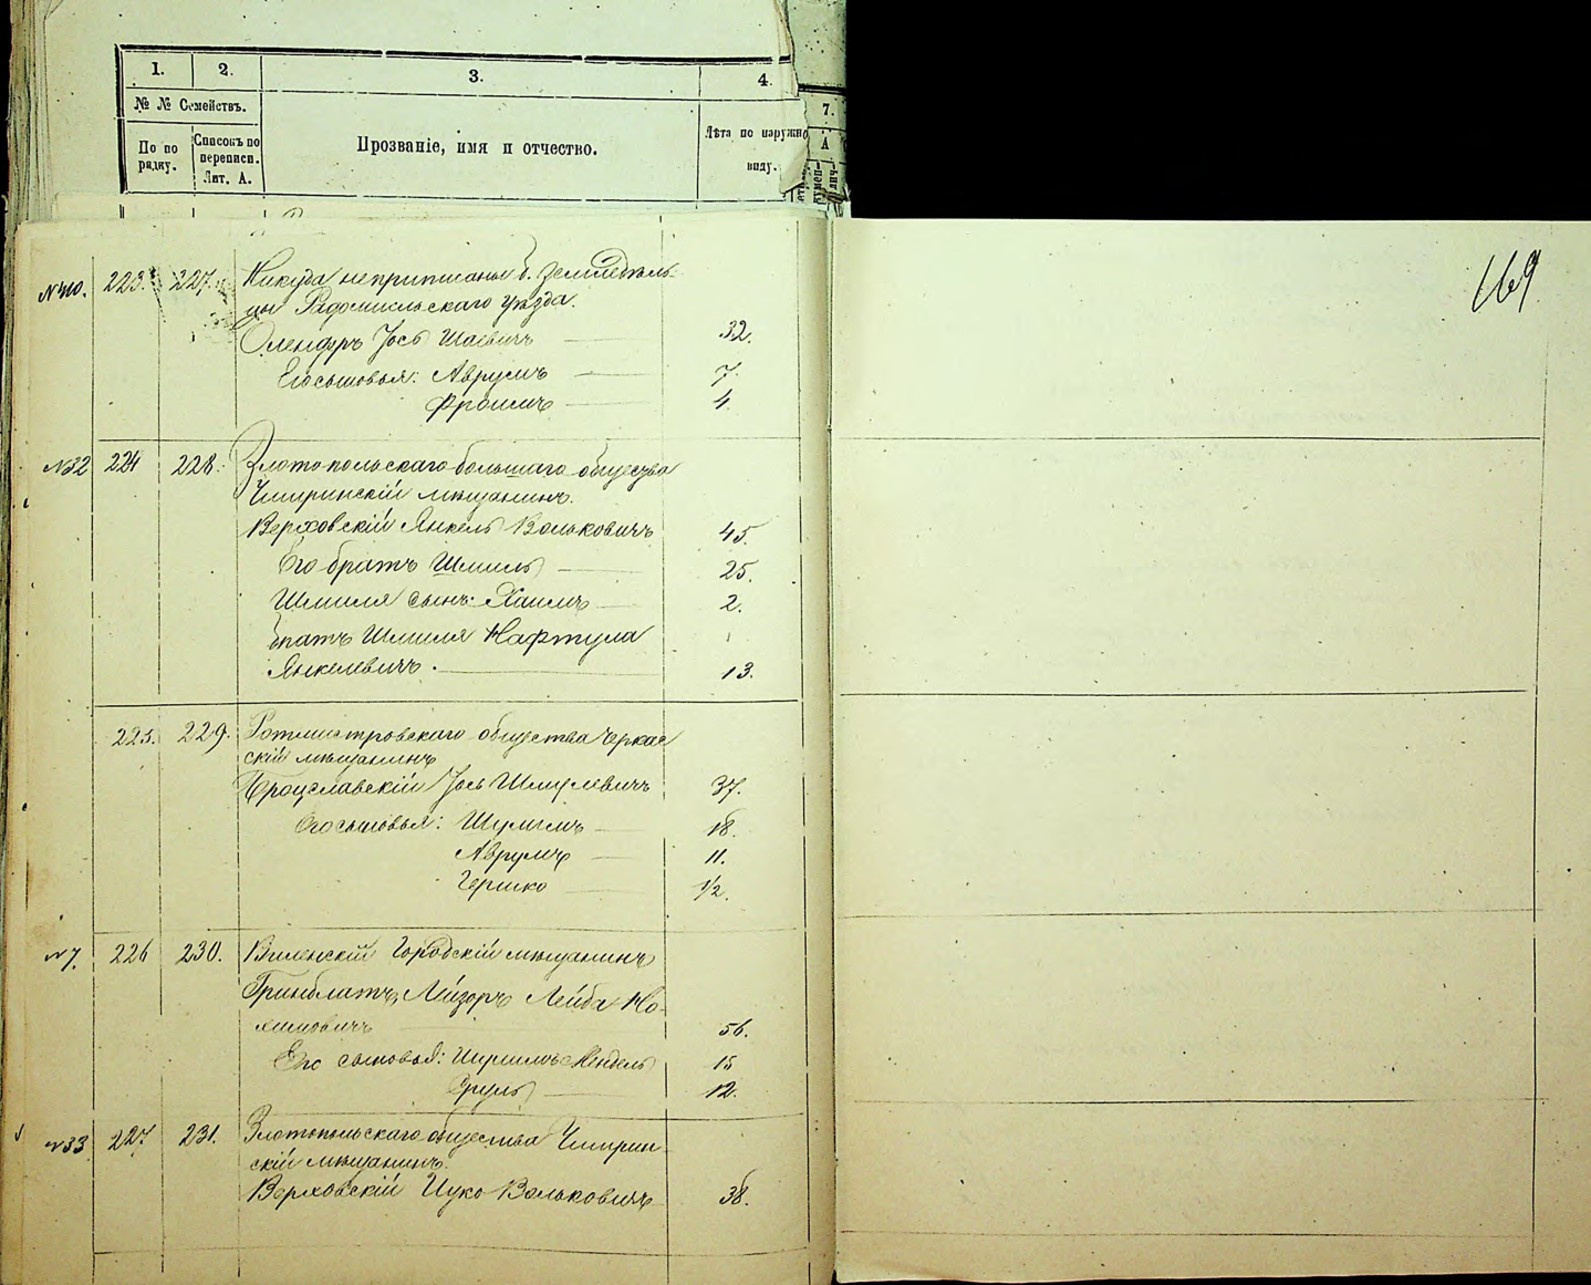 1. 2. 3. 4.
7.
№ № Семействъ.
По по рядку.
Списокъ по переписи. Лит. А.
Прозваніе, имя и отчество.
Лѣта по наружно
виду.
А
169
№ 40. 223. 227. Никуда неприписаные б. Земледѣль-
цы Радомысльскаго уѣзда.
Іось Шаевичъ 32.
Его сыновья: Аврумъ 7.
Фроимъ 4.
№ 32 224 228. Златопольскаго большаго общества
Чигиринскій мѣщанинъ.
Верховскій Янкель Вольковичъ 45.
Его братъ Шмиль 25.
Шмиля сынъ: Хаимъ 2.
братъ Шмиля Нафтула
Янкелевичъ. 13.
225. 229. Ротмистровскаго общества Черкас
скій мѣщанинъ
Брацславскій Іось Шмулевичъ 37.
Его сыновья: 18.
Аврумъ 11.
Гершко 1/2.
№ 7. 226 230. Виленскій Городскій мѣщанинъ
Гринблатъ, Лейзоръ Лейба Но-
химовичъ 56.
Его сыновья: Мендель 15
Сруль 12.
№ 33 227 231. Златопольскаго общества Чигирин
скій мѣщанинъ.
Верховскій Ицко Вольковичъ 38.